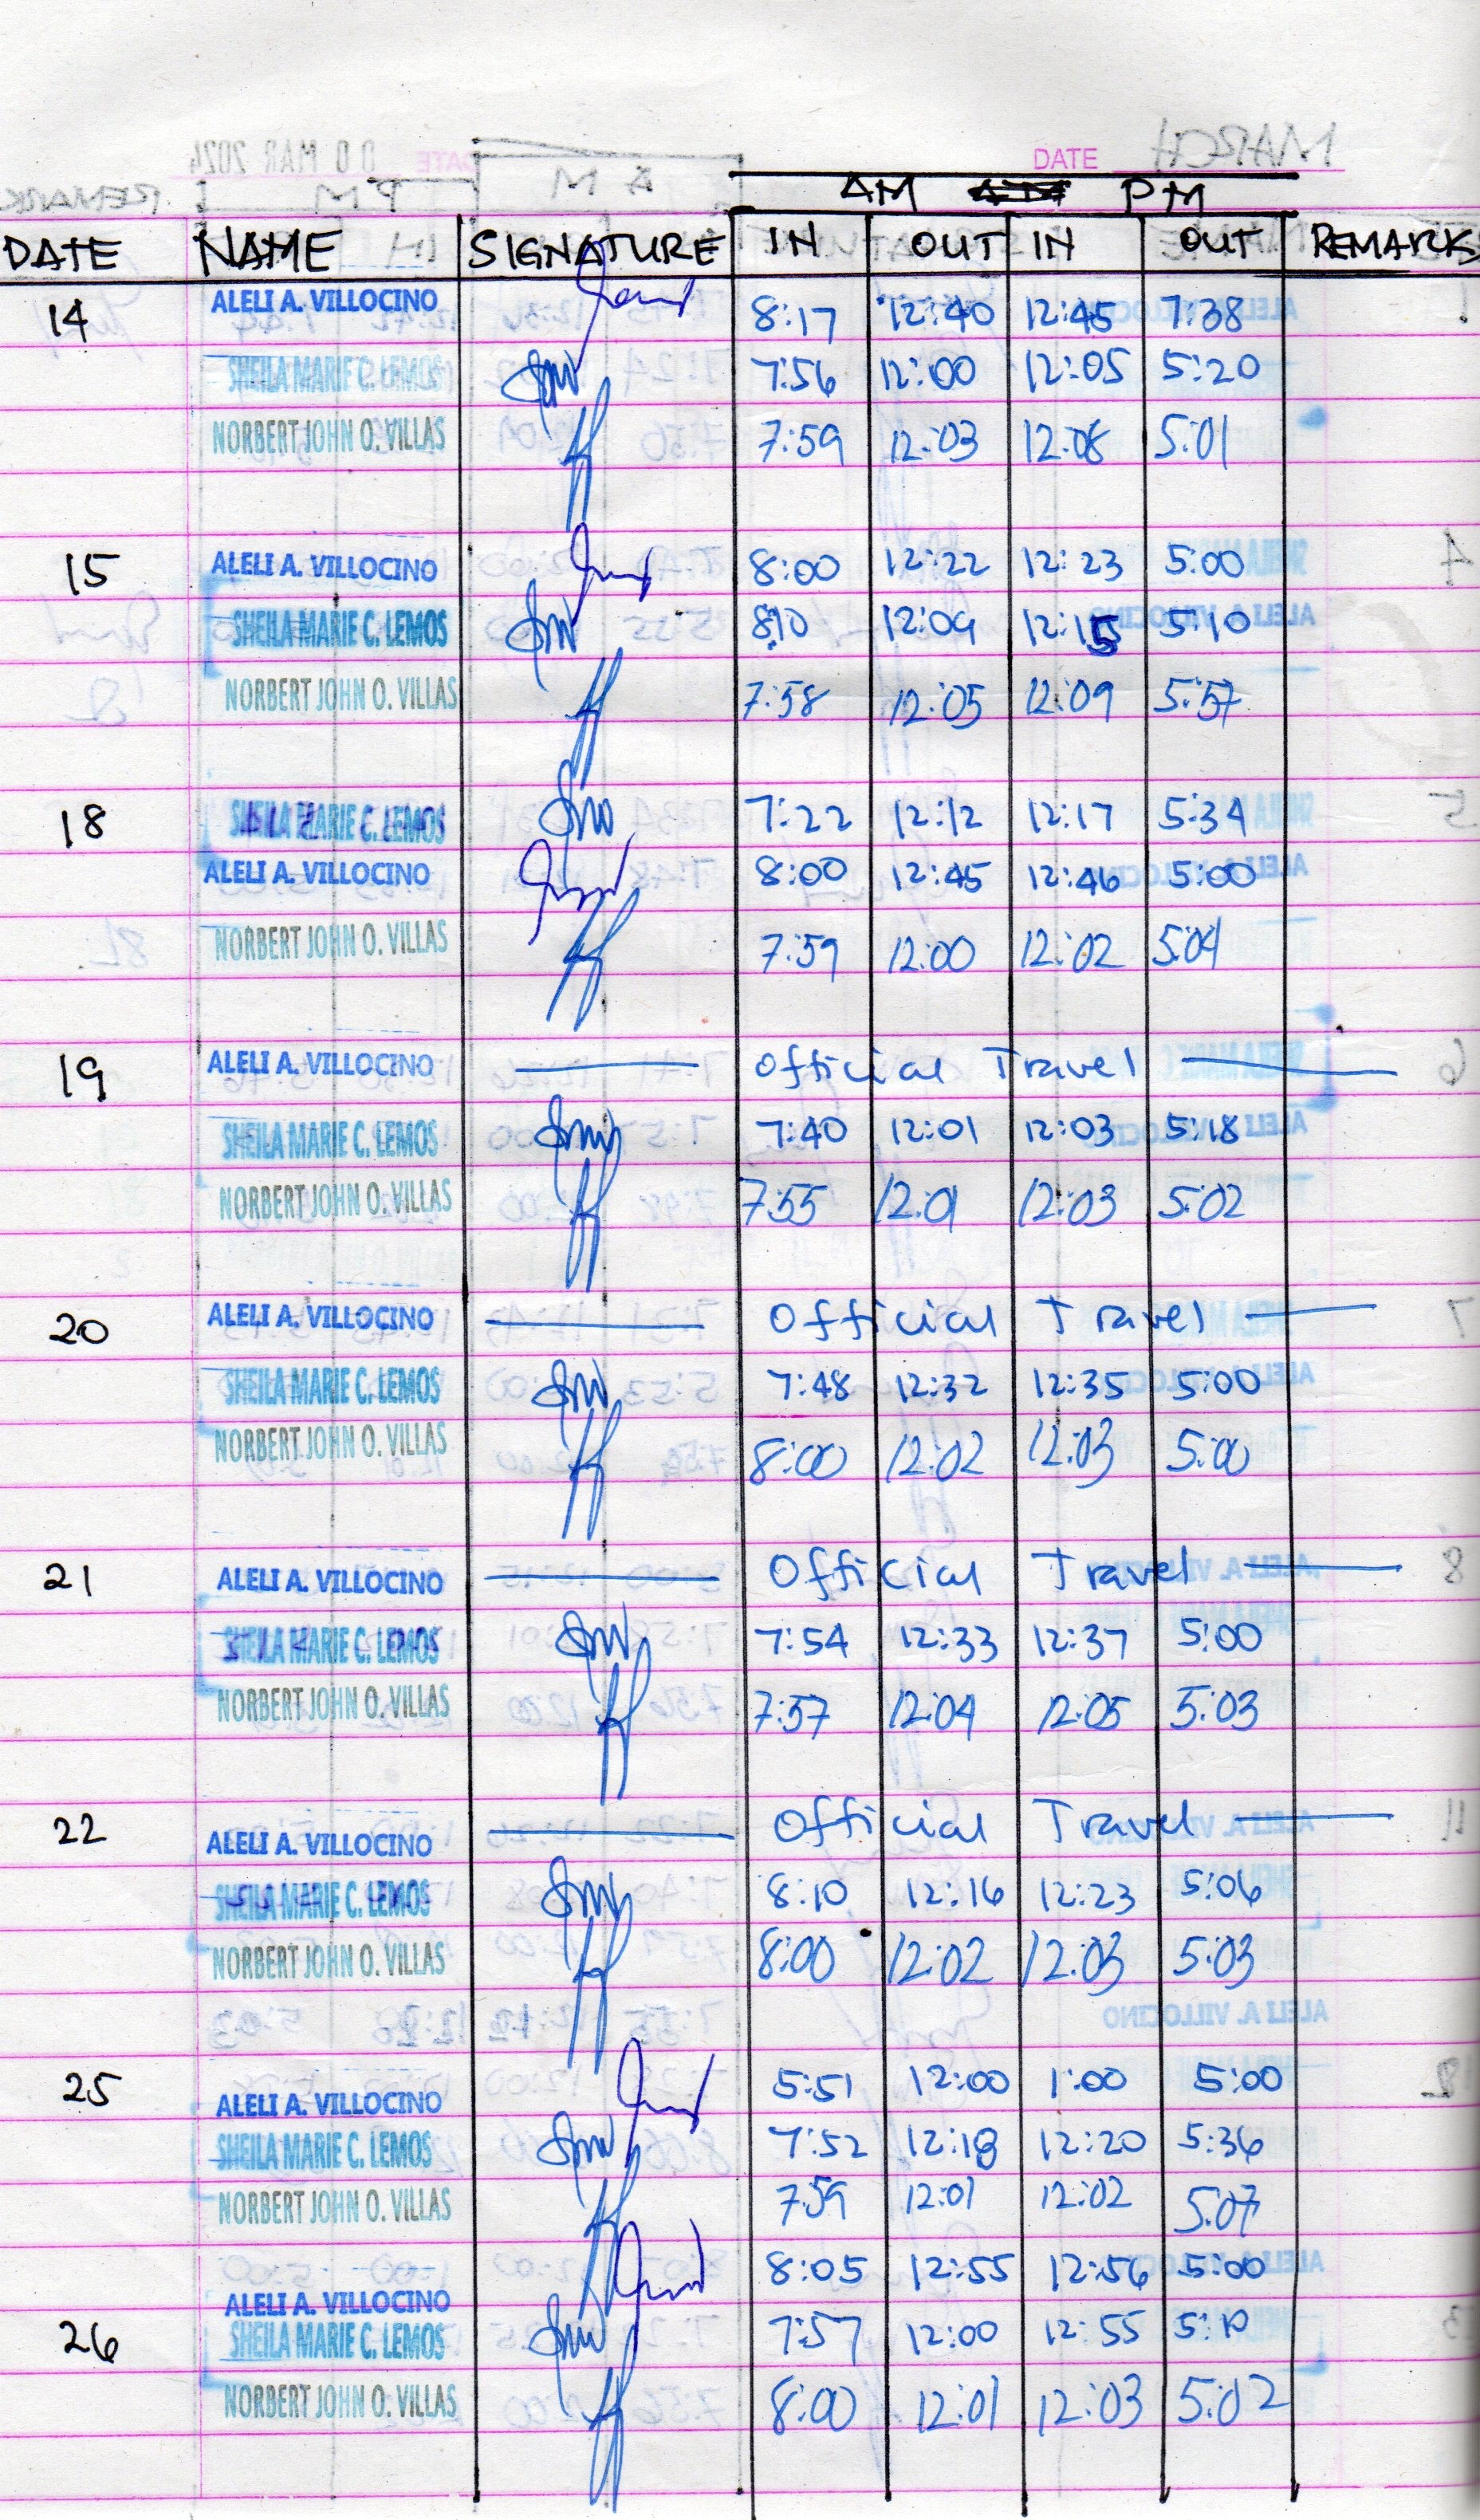 DATE
AM PM
DATE NAME SIGNATURE IN OUT IN OUT REMARKS
14 ALELI A. VILLOCINO 8:17 12:40 12:45 7:38
SHEILA MARIE C. LEMOS 7:56 12:00 12:05 5:20
NORBERT JOHN O. VILLAS 7:59 12:03 12:08 5:01
15 ALELI A. VILLOCINO 8:00 12:22 12:23 5:00
SHEILA MARIE C. LEMOS 8:10 12:09 12:15 5:10
NORBERT JOHN O. VILLAS 7:58 12:05 12:09 5:57
18 SHEILA MARIE C. LEMOS 7:22 12:12 12:17 5:34
ALELI A. VILLOCINO 8:00 12:45 12:46 5:00
NORBERT JOHN O. VILLAS 7:59 12:00 12:02 5:04
19 ALELI A. VILLOCINO Official Travel
SHEILA MARIE C. LEMOS 7:40 12:01 12:03 5:18
NORBERT JOHN O. VILLAS 7:55 12:01 12:03 5:02
20 ALELI A. VILLOCINO Official Travel
SHEILA MARIE C. LEMOS 7:48 12:32 12:35 5:00
NORBERT JOHN O. VILLAS 8:00 12:02 12:03 5:00
21 ALELI A. VILLOCINO Official Travel
SHEILA MARIE C. LEMOS 7:54 12:33 12:37 5:00
NORBERT JOHN O. VILLAS 7:57 12:04 12:05 5:03
22 ALELI A. VILLOCINO Official Travel
SHEILA MARIE C. LEMOS 8:10 12:16 12:23 5:06
NORBERT JOHN O. VILLAS 8:00 12:02 12:03 5:03
25 ALELI A. VILLOCINO 5:51 12:00 1:00 5:00
SHEILA MARIE C. LEMOS 7:52 12:18 12:20 5:36
NORBERT JOHN O. VILLAS 7:59 12:01 12:02 5:07
ALELI A. VILLOCINO 8:05 12:55 12:56 5:00
26 SHEILA MARIE C. LEMOS 7:57 12:00 12:55 5:10
NORBERT JOHN O. VILLAS 8:00 12:01 12:03 5:02